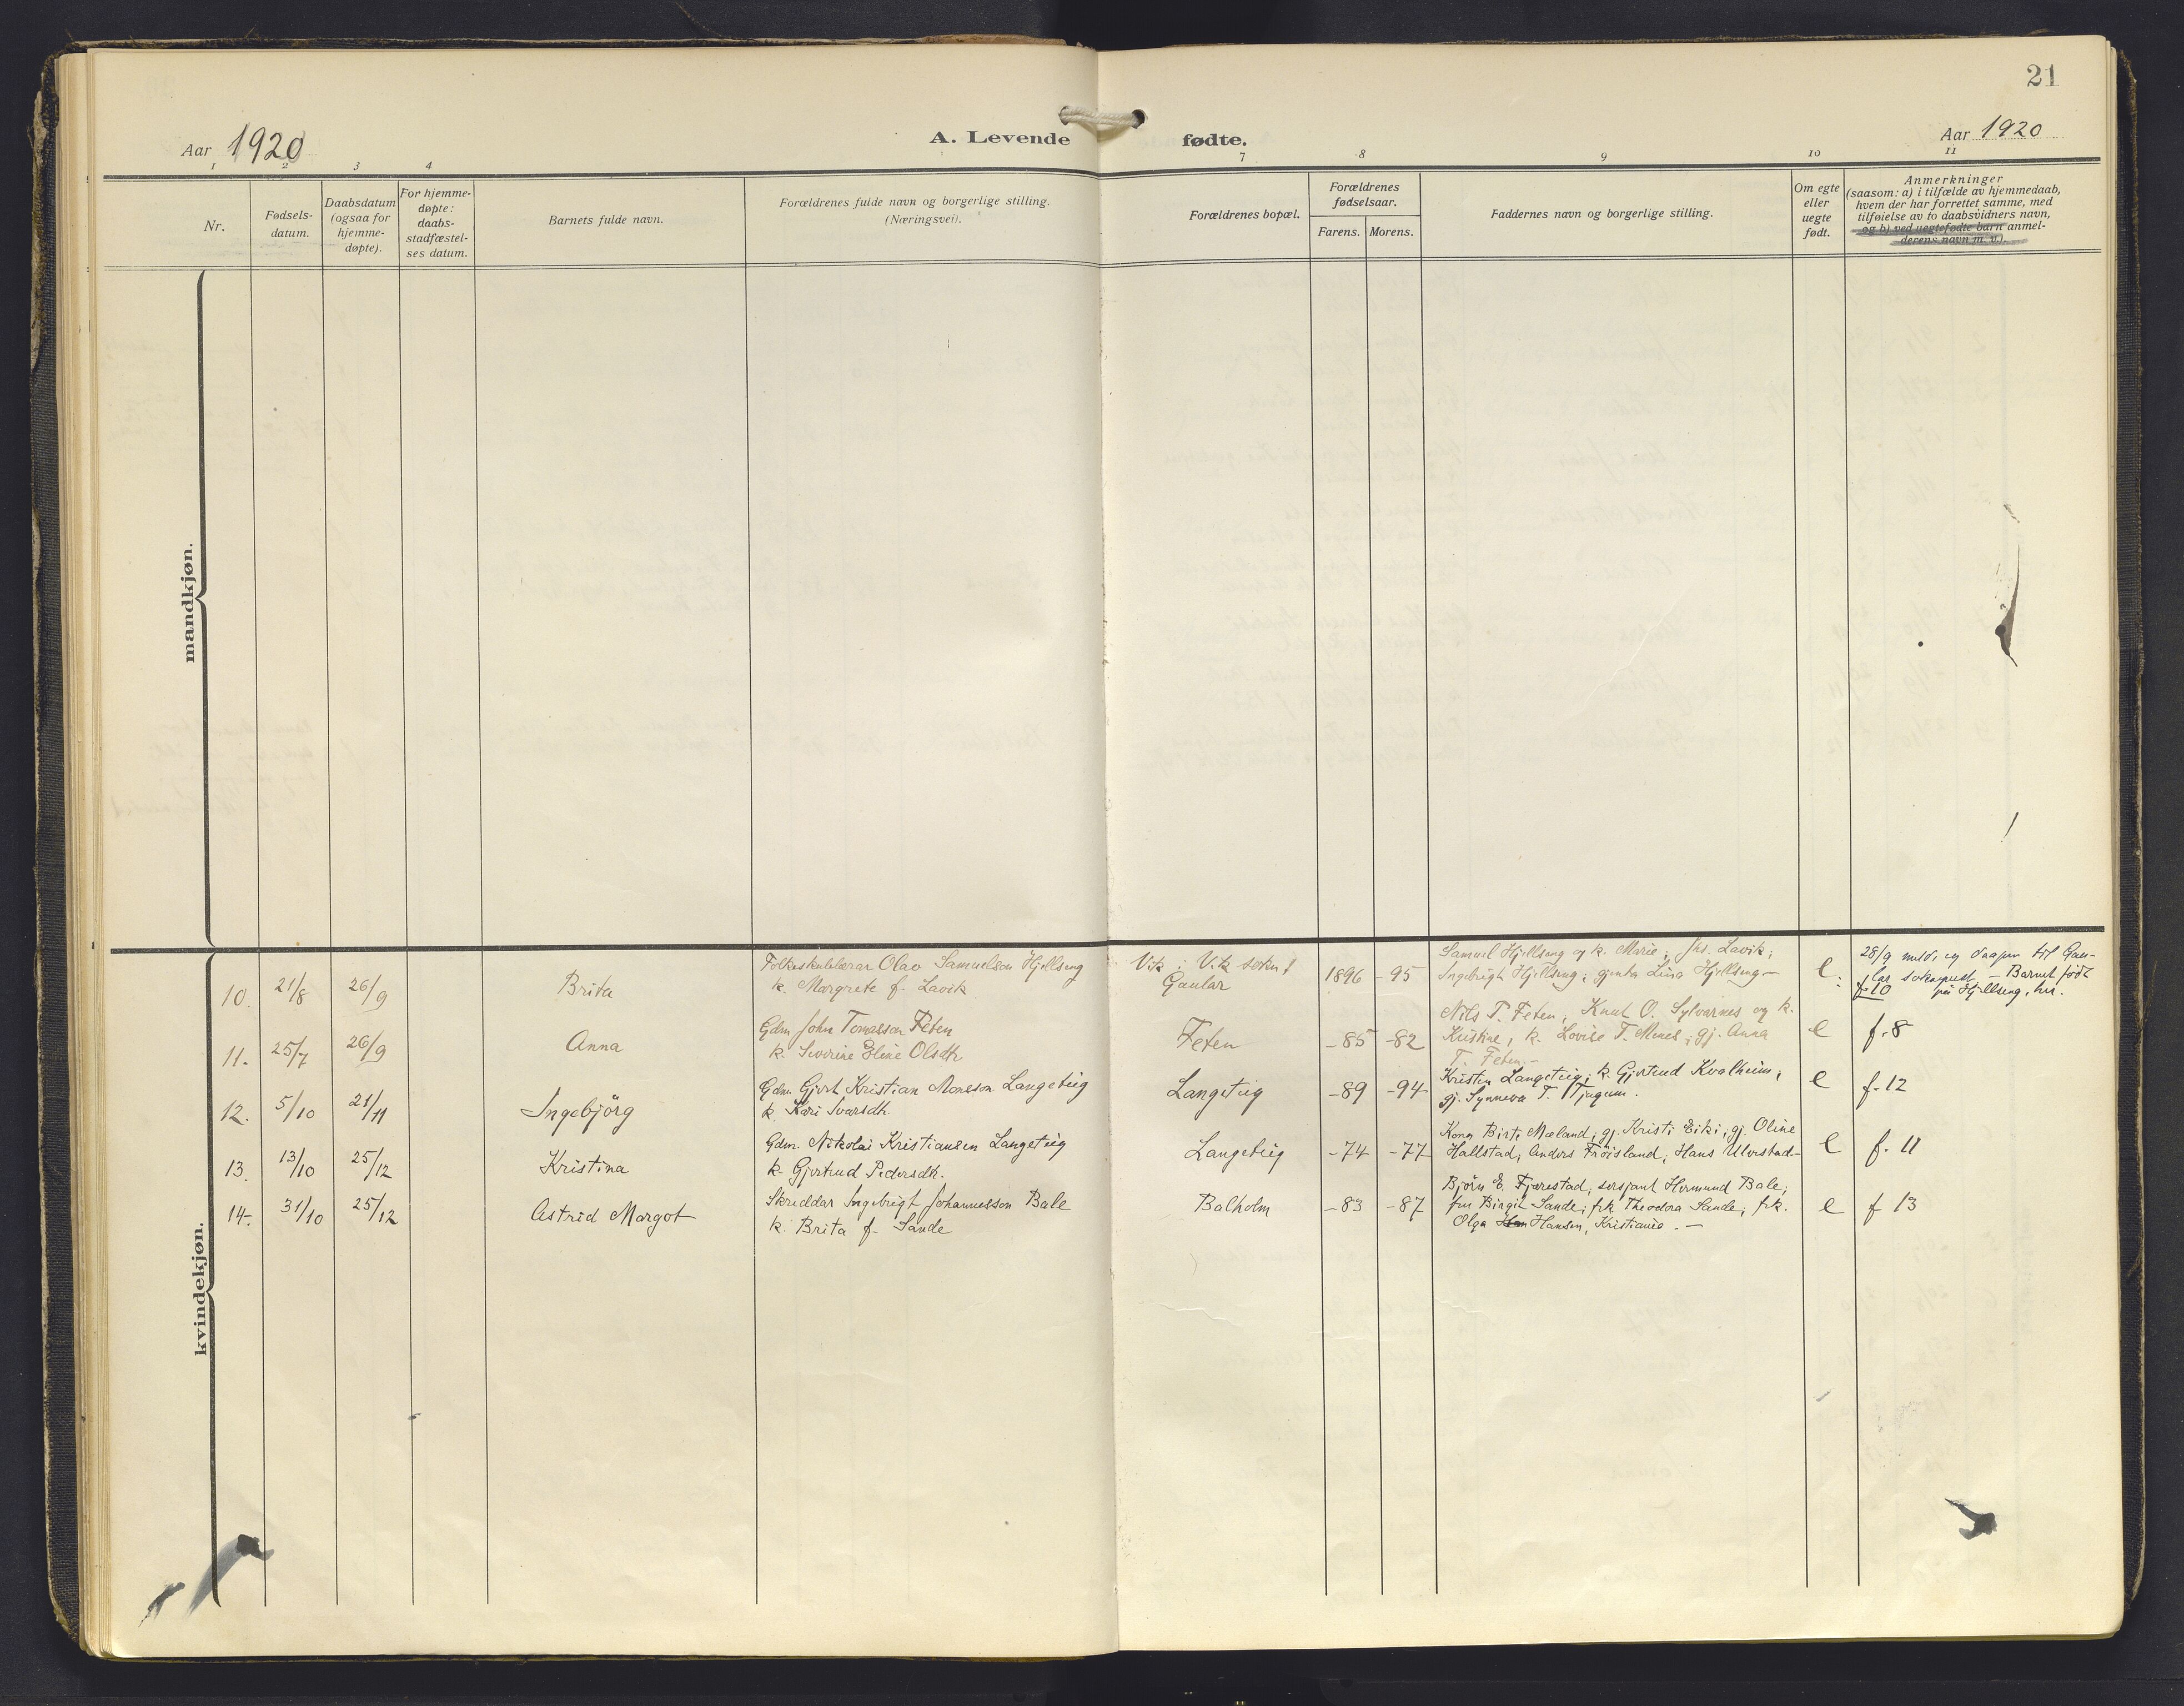 21
Aar 1920
A. Levende fødte.
Aar 1920
1 2 3 4 7 8 9 10 11
Nr.
Fødsels-
datum.
Daabsdatum
(ogsaa for
hjemme-
døpte).
For hjemme-
døpte:
daabs-
stadfæstel-
ses datum.
Barnets fulde navn.
Forældrenes fulde navn og borgerlige stilling.
(Næringsvei).
Forældrenes bopæl.
Forældrenes
fødselsaar.
Farens. Morens.
Faddernes navn og borgerlige stilling.
Om egte
eller
uegte
født.
Anmerkninger
(saasom: a) i tilfælde av hjemmedaab,
hvem der har forrettet samme, med
tilføielse av to daabsvidners navn,
og b) ved uegtefødte barn anmel-
derens navn m. v.).
mandkjøn.
kvindekjøn.
10. 21/8 26/9 Brita
Folkeskulelærar Olav Samuelson Hjellseng
k. Margrete f. Lavik
Vik i Vik sokn i
Gaular
1896 -95
Samuel Hjellseng og k. Marie; Jhs. Lavik;
Ingebrigt Hjellseng; gjenta Lina Hjellseng-
e.
28/9 meld. eg daapen til Gau-
lar sokneprest. - Barnet född
f. 10 på Hjellseng, her.
11. 25/7 26/9 Anna
Gdm John Tomasson Feten
k. Severine Eline Olsdtr
Feten
-85 -82
Nils T. Feten, Knut O. Sylvarnes og k.
Kristine, k. Lovise T. Menes; gj. Anna
T. Feten.-
e
f. 8
12. 5/10 21/11 Ingebjörg
Gdm. Gjert Kristian Monsson Langeteig
k. Kari Ivarsdtr.
Langeteig
-89 -94
Kristen Langeteig; k. Gjertrud Kvalheim;
gj. Synneva T. Tjugum.
e
f. 12
13. 13/10 25/12 Kristina
Gdm. Nikolai Kristiansen Langeteig
k. Gjertrud Pedersdtr.
Langeteig
-74 -77
Kona Birte Mæland; gj. Kristi Eiki; gj. Oline
Hallstad; Anders Fröisland; Hans Ulvestad-
e
f. 11
14. 31/10 25/12 Astrid Margot
Skreddar Ingebrigt Johannesson Bale
k. Brita f. Sande
Balholm
-83 -87
Björn E. Fjærestad; sersjant Hermund Bale;
fru Birgit Sande; frk Theodora Sande; frk.
Olga Han Hansen, Kristiania. -
e
f 13